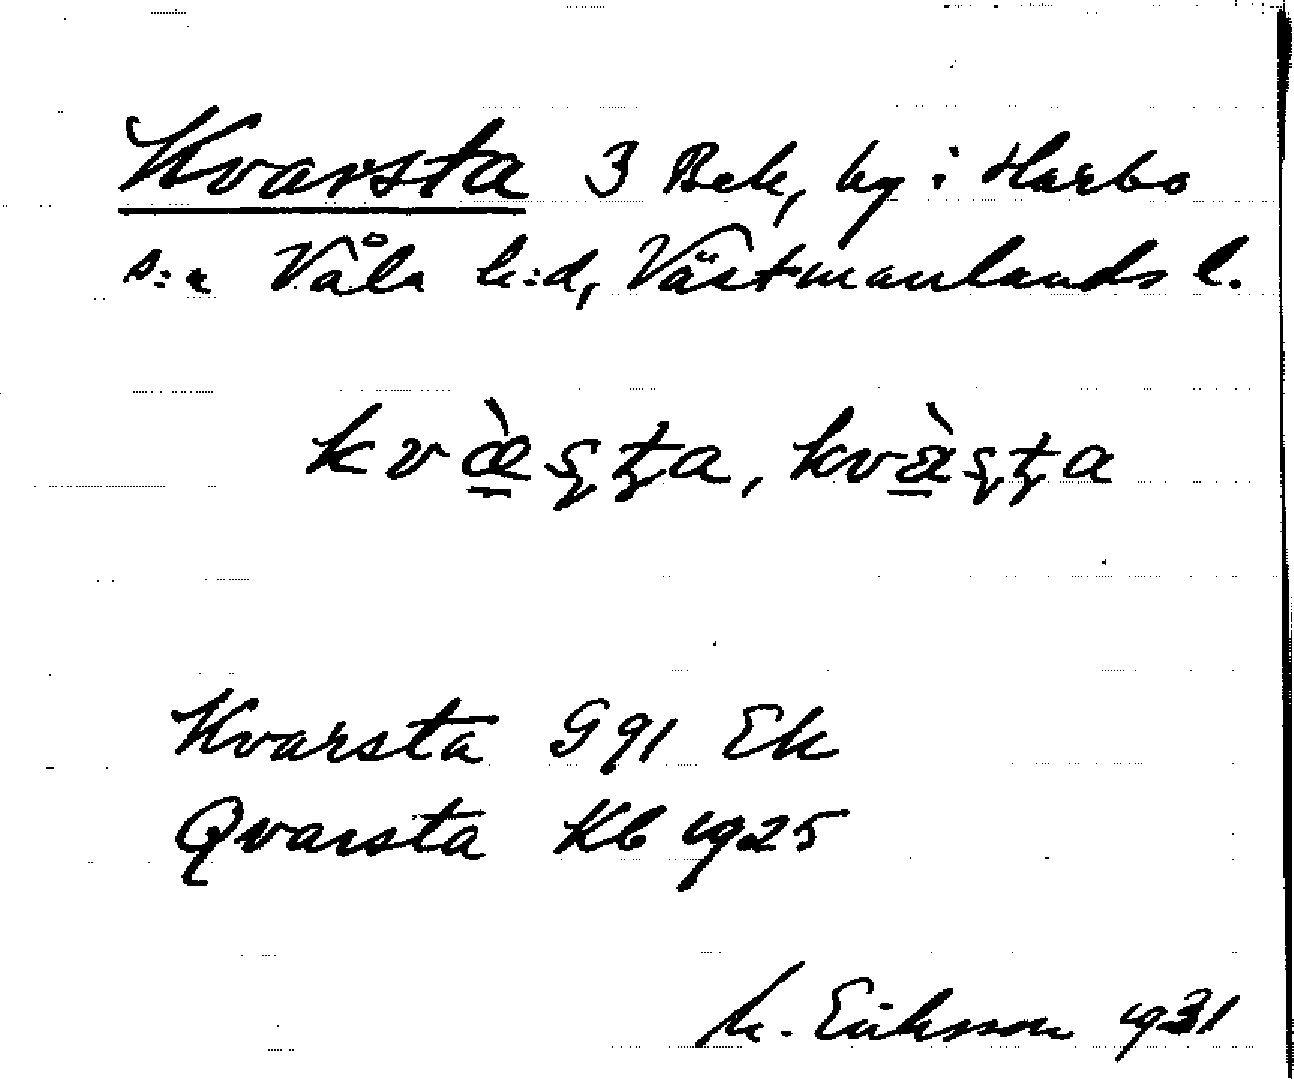 Kvarsta 3 Bek, by i Harbo
s:n Våla h:d, Västmanlands l.
Kvarsta G 91 Ek
Qvarsta Kb 1925
M. Eriksson 1931